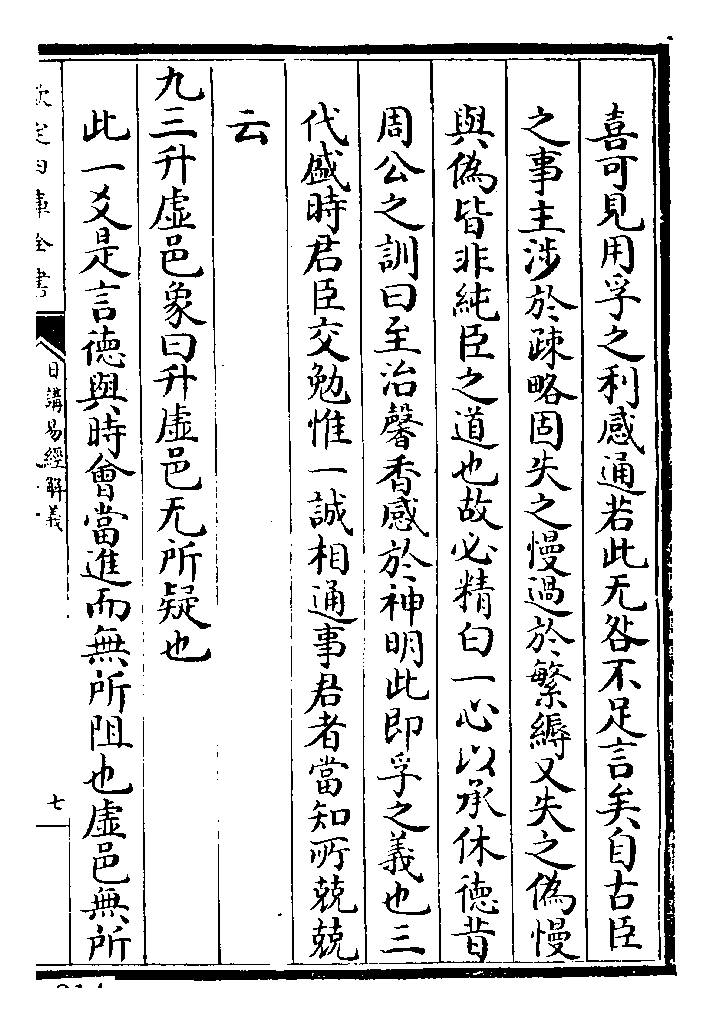 喜可見用孚之利感通若此无咎不足言矣自古臣
之事主涉於疎略固失之慢過於繁縟又失之偽慢
與偽皆非純臣之道也故必精白一心以承休德昔
周公之訓曰至治馨香感於神明此即孚之義也三
代盛時君臣交勉惟一誠相通事君者當知所兢兢
云
九三升虛邑象曰升虛邑无所疑也
此一爻是言德與時會當進而無所阻也虛邑無所
欽定四庫全書
日講易經解義
七